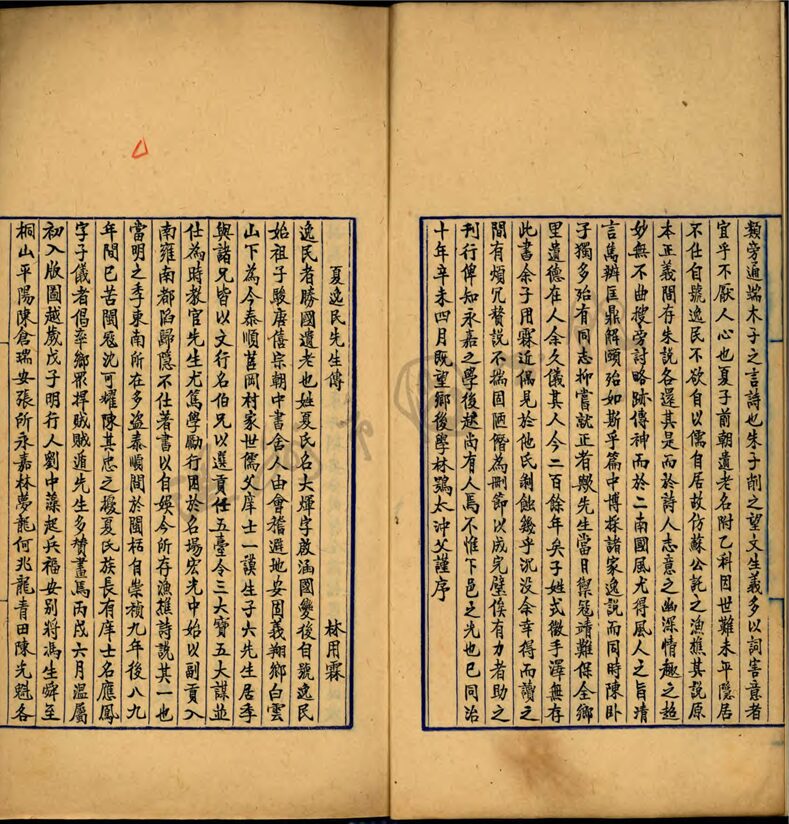 類旁通端木子之言詩也朱子削之望文生義多以詞害意者
宜乎不厭人心也夏子前朝遺老名附乙科因世難未平隱居
不仕自號逸民不欲自以儒自居故仿蘇公託之漁樵其說原
本正義間存朱說各還其是而於詩人志意之幽深情趣之超
妙無不曲搜旁討略跡傳神而於二南國風尤得風人之旨清
言萬辨匡鼎解頤殆如斯乎篇中博採諸家逸說而同時陳卧
子獨多殆有同志抑嘗就正者歟先生當日禦寇靖難保全鄉
里遺德在人余久儀其人今二百餘年矣子姓式微手澤無存
此書余子用霖近偶見於他氏剝蝕幾乎沉没余幸得而讀之
間有煩冗贅說不揣固陋僭為刪節以成完璧俟有力者助之
刊行俾知永嘉之學後起尚有人焉不惟下邑之光也已同治
十年辛未四月既望鄉後學林鶚太沖父謹序
夏逸民先生傳
林用霖
逸民者勝國遺老也姓夏氏名大煇字啟涵國變後自號逸民
始祖子駿唐僖宗朝中書舍人由會稽避地安固義翔鄉白雲
山下為今泰順莒岡村家世儒父庠士一謨生子六先生居季
與諸兄皆以文行名伯兄以選貢任五臺令三大寶五大謀並
仕為時教官先生尤篤學勵行困於名場宏光中始以副貢入
南雍南都陷歸隱不仕著書以自娛今所存漁樵詩說其一也
當明之季東南所在多盜泰順間於閩栝自崇禎九年後八九
年間已苦閩寇沈可耀陳其忠之擾夏氏族長有庠士名應鳳
字子儀者倡率鄉眾捍賊賊遁先生多贊畫焉丙戌六月溫屬
初入版圖越歲戊子明行人劉中藻起兵福安别將馮生舜至
桐山平陽陳倉瑞安張所永嘉林夢龍何兆龍青田陳光魁各